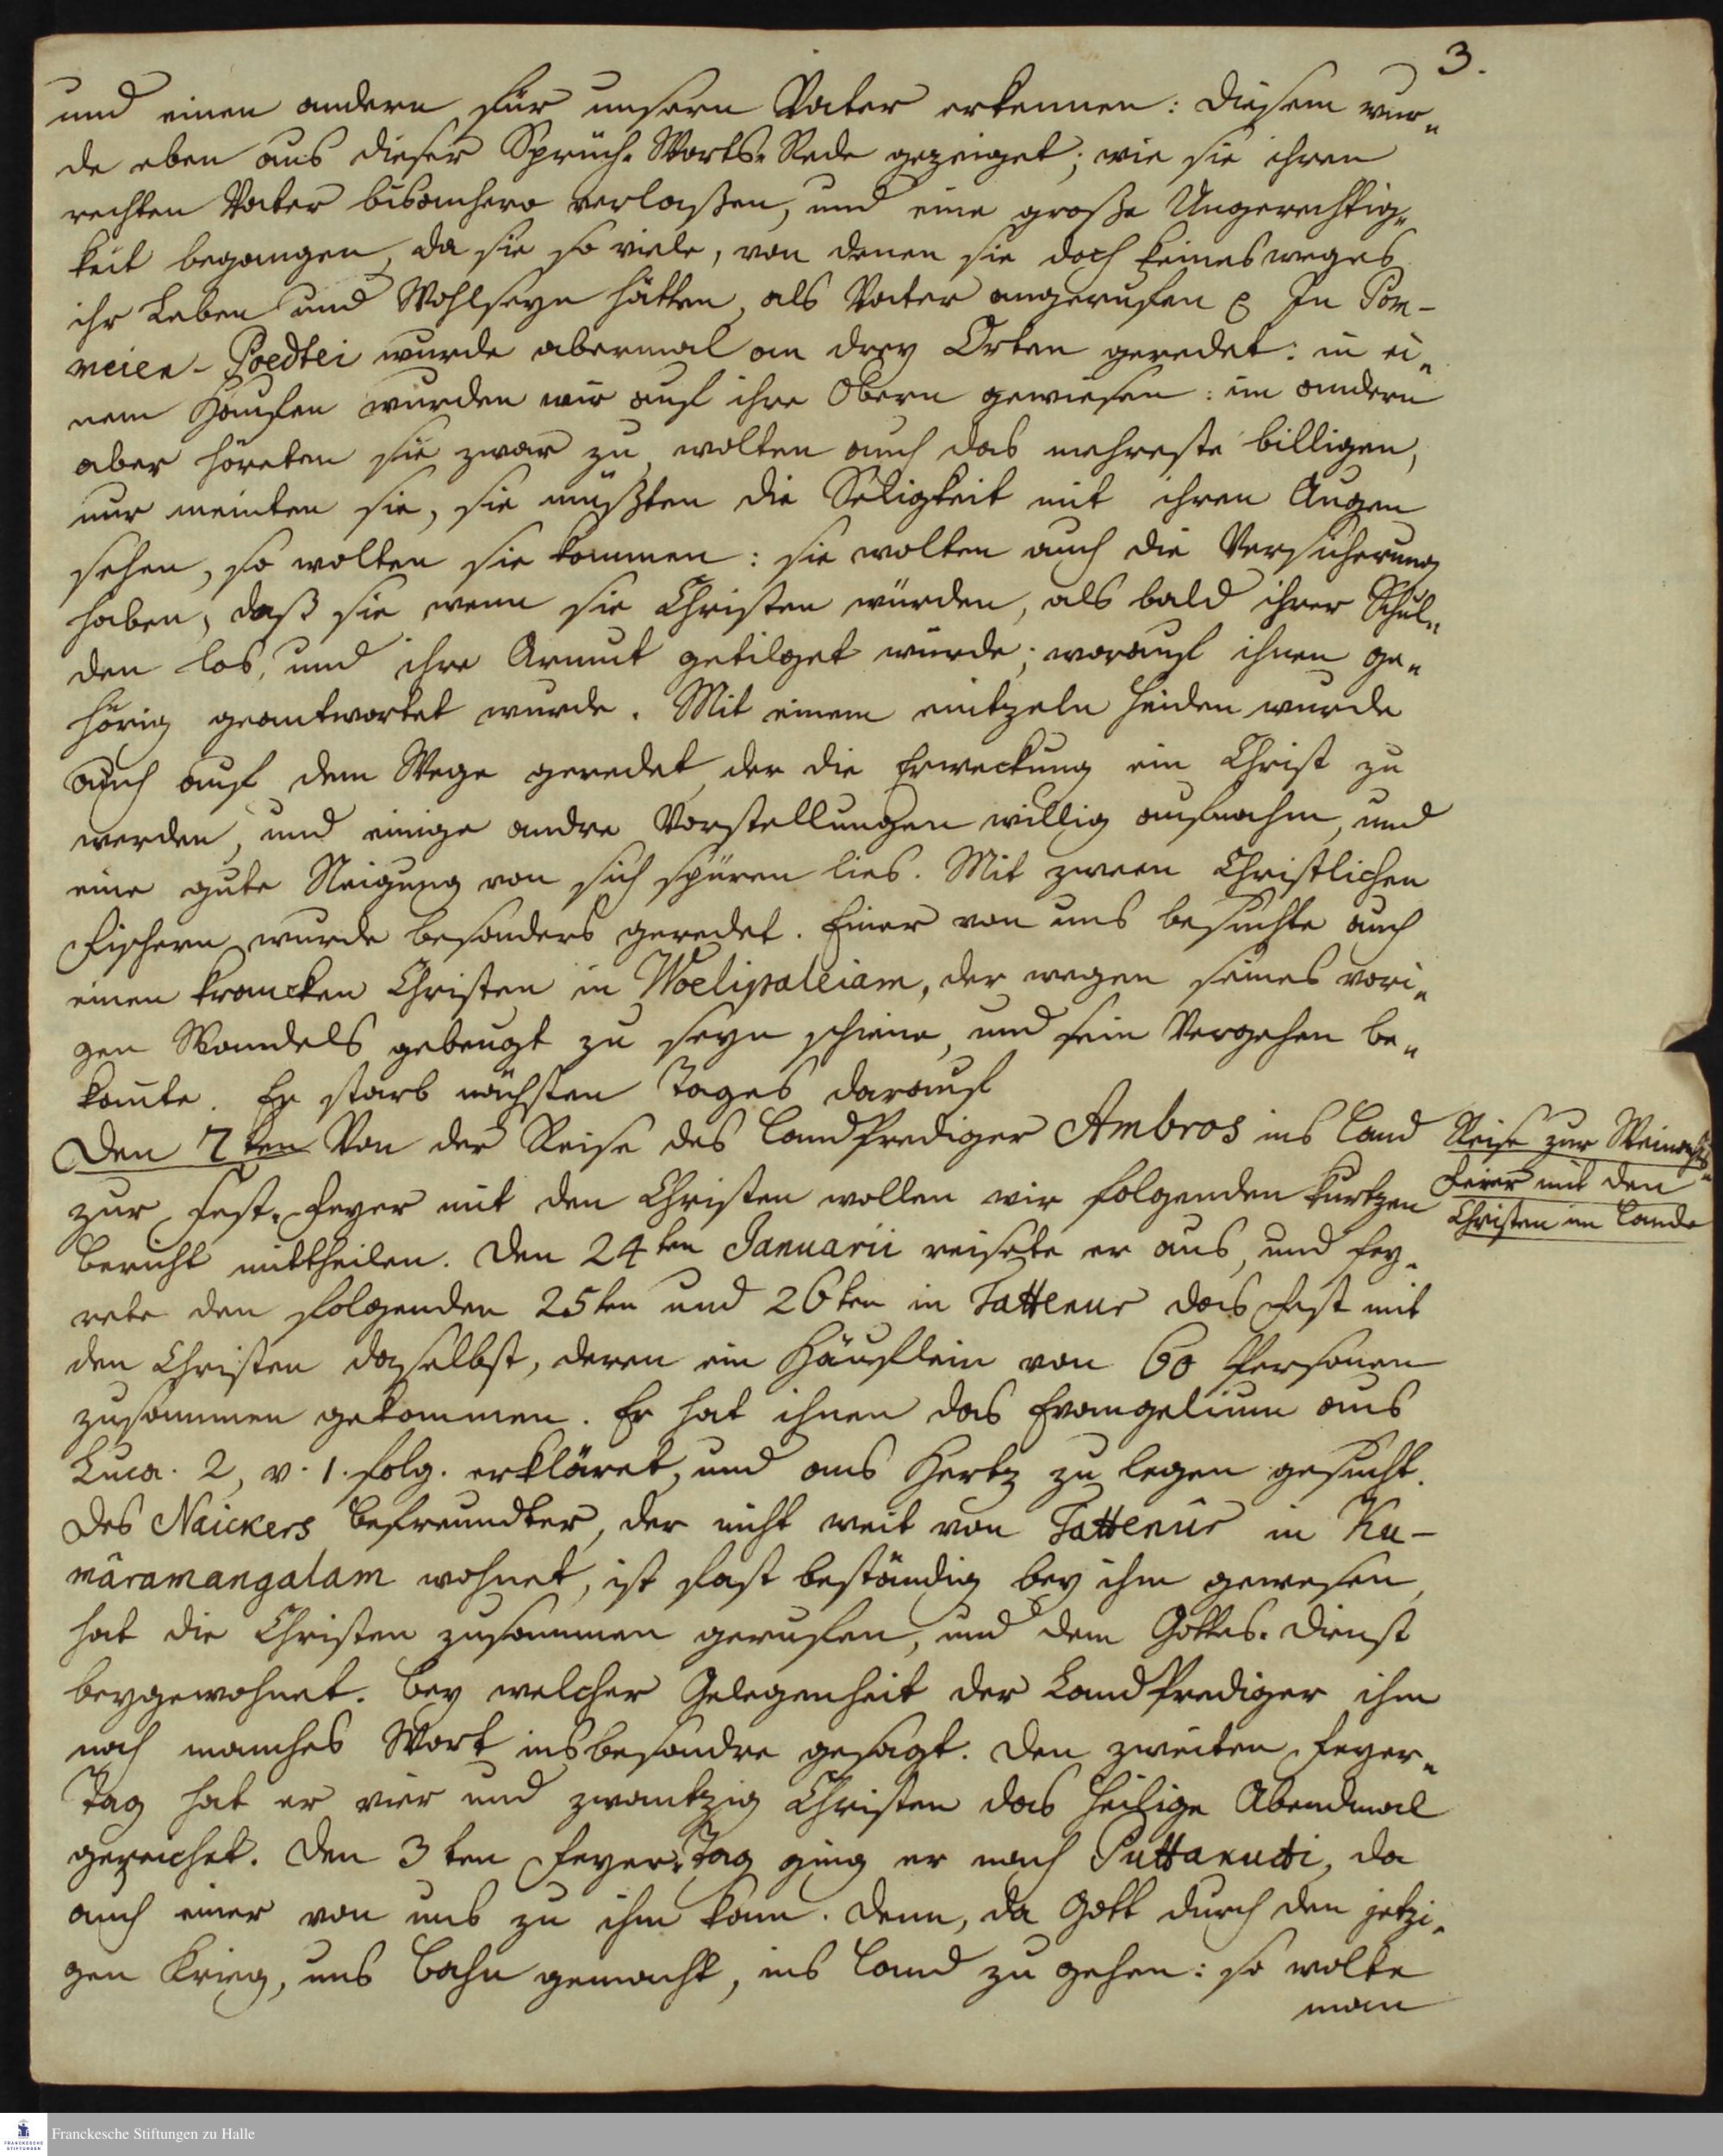 3.
und einen andern für unsern Vater erkennen: diesem wur„
de eben aus dieser Sprüch-Worts-Rede gezeiget; wie sie ihren
rechten Vater bisanhero verlaßen, und eine große Ungerechtig„
keit begangen, da sie so viele, von denen sie doch keinesweges
ihr Leben und Wohlseyn hätten, als Vater angerufen. In Por-
reien-Poedtei wurde abermal an drey Orten geredet: in ei„
nem Haufen wurden wir auf ihre Obern gewiesen: im andern
aber höreten sie zwar zu, wolten auch das mehreste billigen,
nur meinten sie, sie müßten die Seligkeit mit ihren Augen
sehen, so wolten sie kommen: sie wolten auch die Versicherung
haben, daß sie wenn sie Christen würden, als bald ihrer Schul„
den los, und ihre Armut getilget würde; worauf ihnen ge„
hörig geantwortet wurde. Mit einem eintzeln Heiden wurde
auch auf dem Wege geredet, der die Erweckung ein Christ zu
werden, und einige andre Vorstellungen willig aufnahm, und
eine gute Neigung von sich spüren lies. Mit zween Christlichen
Fischern wurde besonders geredet. Einer von uns besuchte auch
einen krancken Christen in Woelipaleiam, der wegen seines vori„
gen Wandels gebeugt zu seyn schiene, und sein Vergehen be„
kante. Er starb nächsten Tages darauf
Den 7ten Von der Reise des Landprediger Ambros ins Land
zur Fest-Feyer mit den Christen wollen wir folgenden kurtzen
Bericht mittheilen. Den 24ten Januarii reisete er aus, und fey„
rete den folgenden 25ten und 26ten in Tattenur das Fest mit
den Christen daselbst, deren ein Häuflein von 60 Personen
zusammen gekommen. Er hat ihnen das Evangelium aus
Luca. 2, v. 1. folg. erkläret, und ans Hertz zu legen gesucht.
Des Naickers Befreundter, der nicht weit von Tattenûr in Ku-
mâramangalam wohnet, ist fast beständig bey ihm gewesen,
hat die Christen zusammen gerufen, und dem Gottes-Dienst
beygewohnet. Bey welcher Gelegenheit der Landprediger ihm
noch manches Wort insbesondre gesagt. Den zweiten Feyer„
Tag hat er vier und zwantzig Christen das Heilige Abendmal
gereichet. Den 3ten Feyer-Tag ging er nach Puttakudi, da
auch einer von uns zu ihm kam. Denn, da Gott durch den jetzi„
gen Krieg, uns Bahn gemacht, ins Land zu gehen: so wolte
man
Reise zur Weinachts„
Feier mit den
Christen im Lande
Franckesche Stiftungen zu Halle
FRANCKESCHE STIFTUNGEN